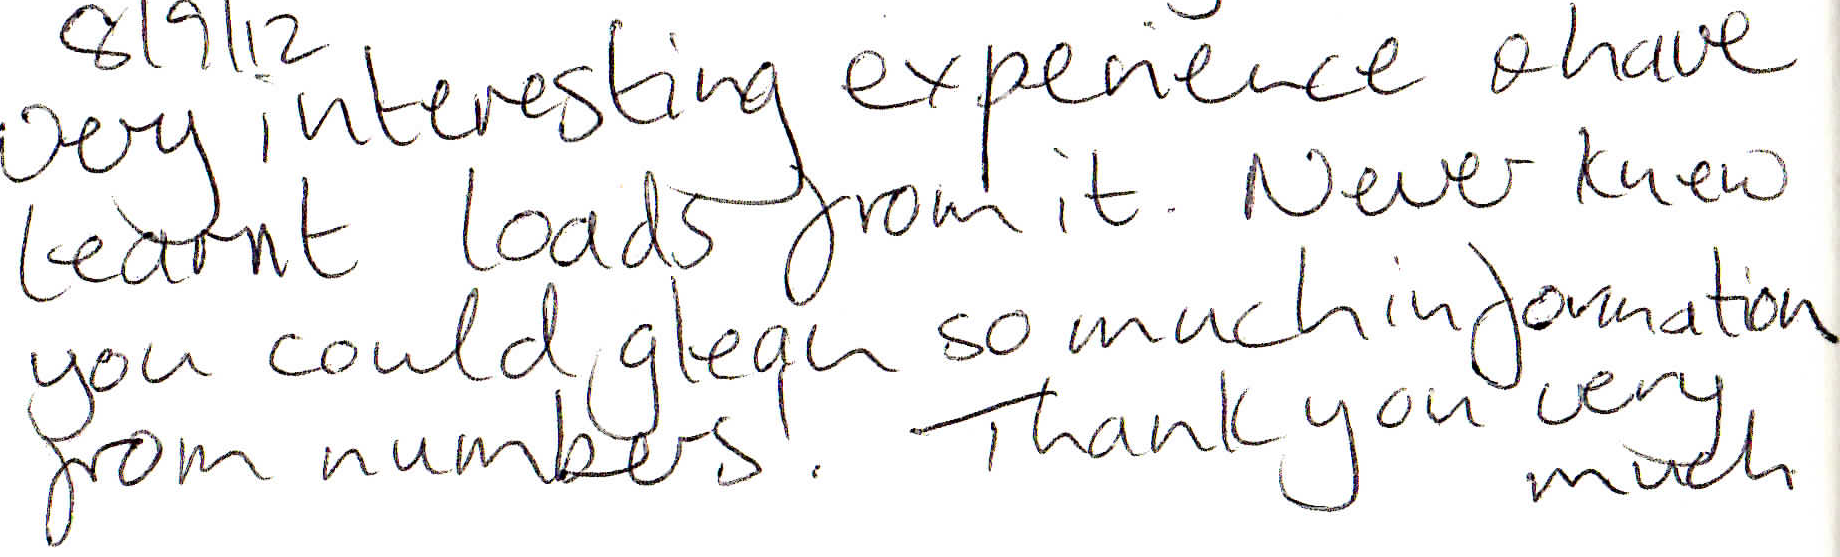 8/9/12
Very interesting experience & have
learnt loads from it. Never knew
you could glean so much information
from numbers! Thank you very
much